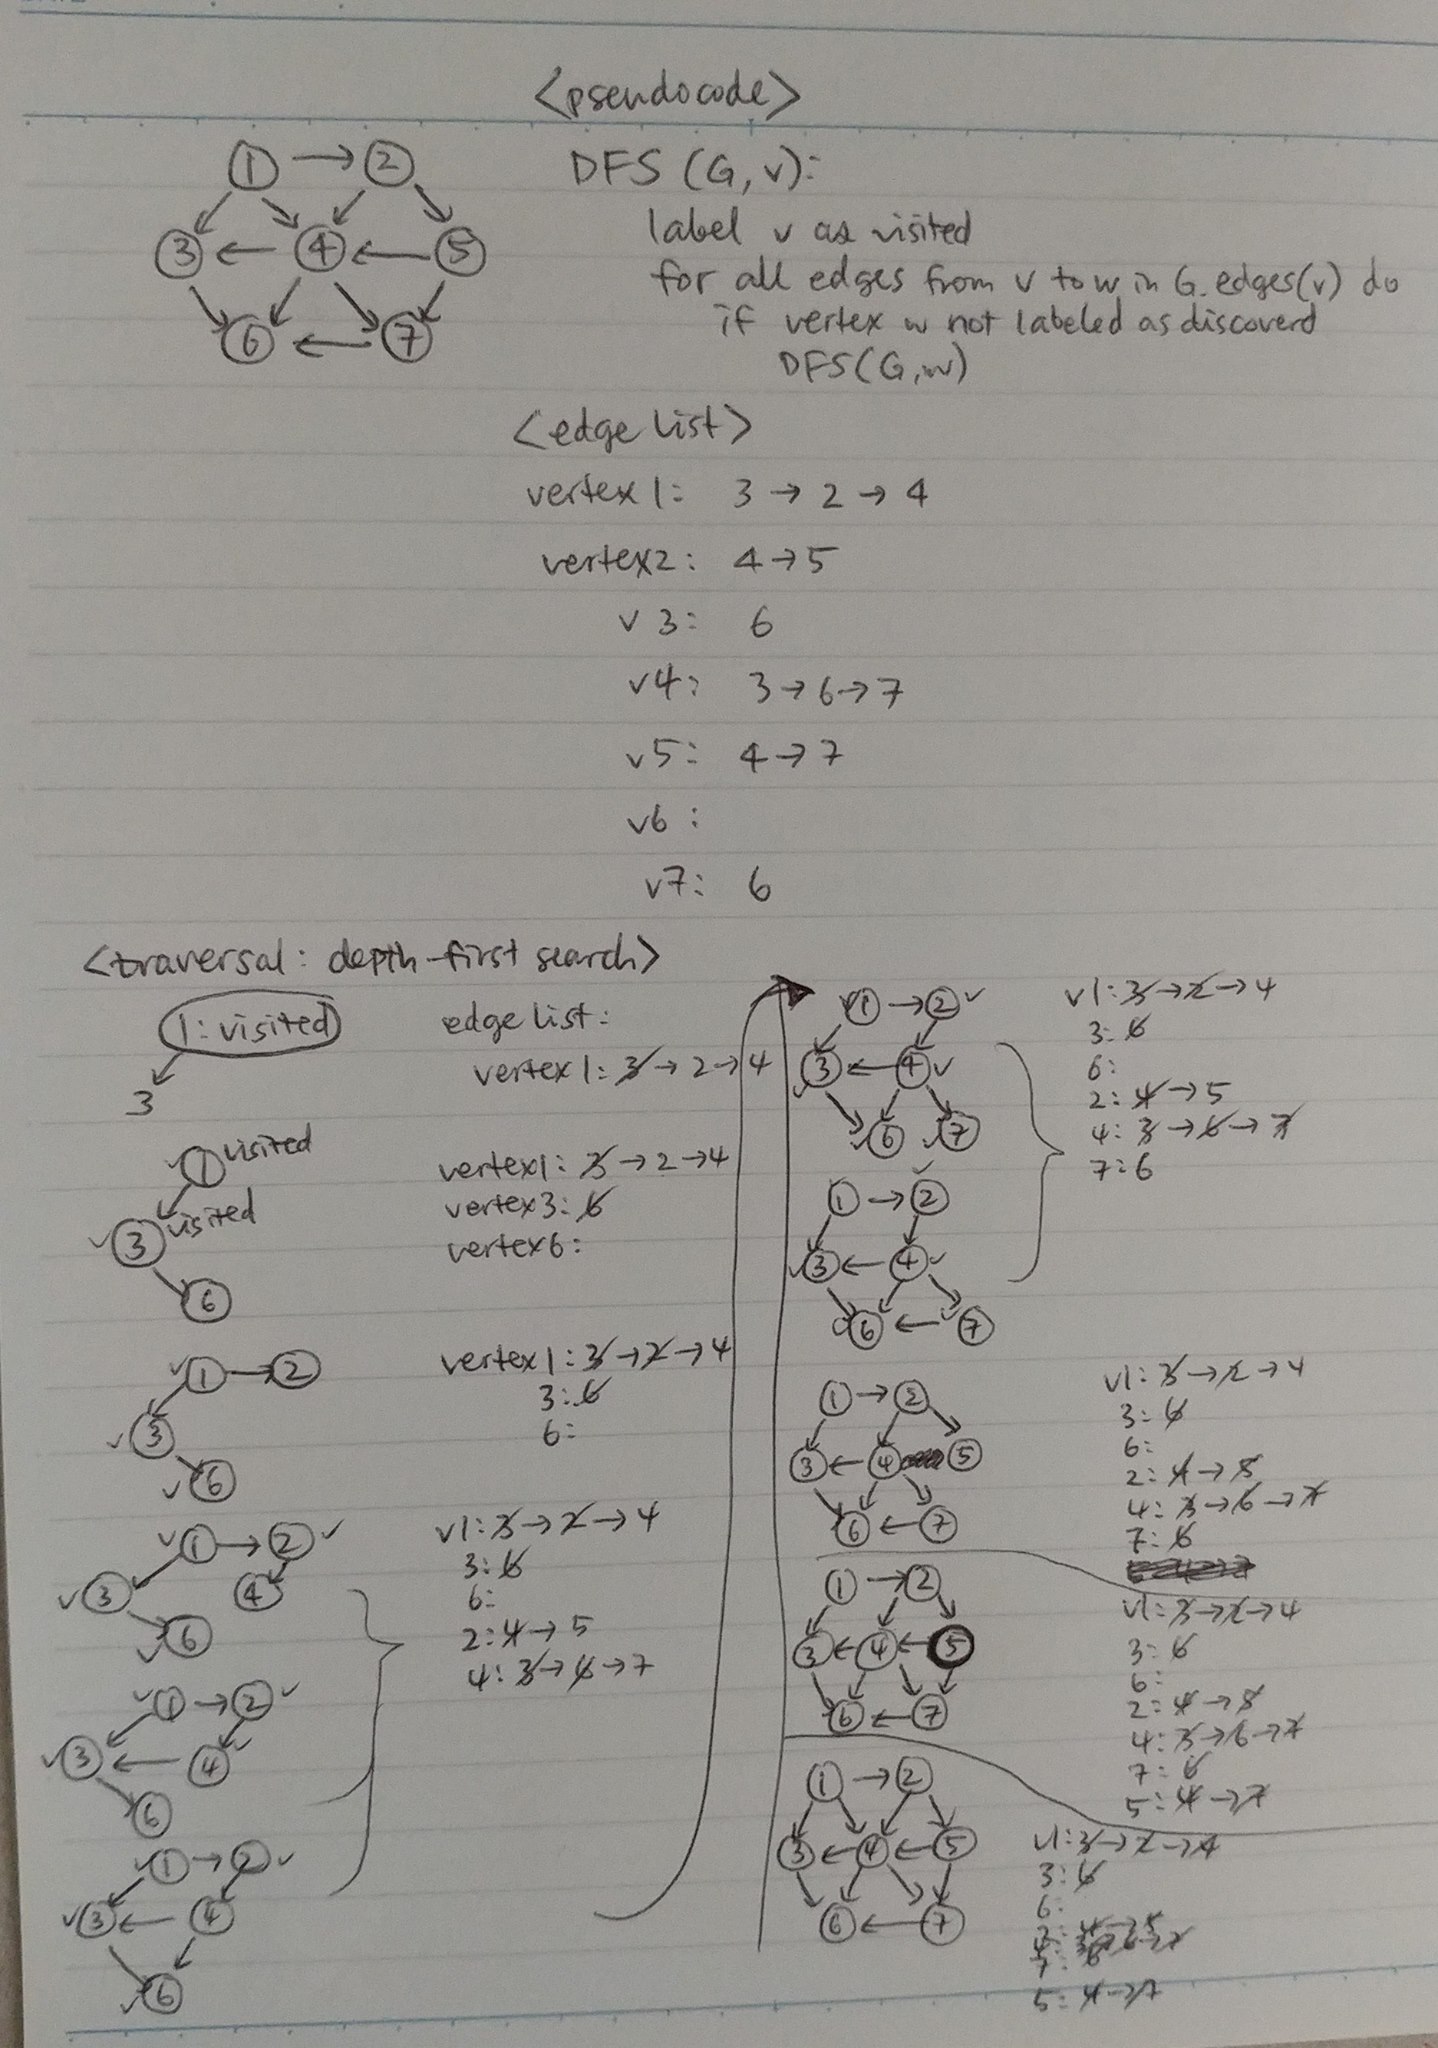 <pseudocode>
1 → 2
3 ← 4 ← 5
6 ← 7
DFS (G, v):
label v as visited
for all edges from v to w in G.edges(v) do
if vertex w not labeled as discoverd
DFS(G,w)
<edge list>
vertex1: 3 → 2 → 4
vertex2: 4 → 5
v3: 6
v4: 3 → 6 → 7
v5: 4 → 7
v6:
v7: 6
<traversal: depth-first search>
1: visited
3
edge list:
vertex1: 3 → 2 → 4
1 visited
3 visited
6
vertex1: 3 → 2 → 4
vertex3: 6
vertex6:
1 → 2
3
6
vertex1: 3 → 2 → 4
3: 6
6:
1 → 2
3 4
6
1 → 2
3 ← 4
6
1 → 2
3 ← 4
6
v1: 3 → 2 → 4
3: 6
6:
2: 4 → 5
4: 3 → 6 → 7
1 → 2
3 ← 4
6 7
1 → 2
3 ← 4
6 ← 7
v1: 3 → 2 → 4
3: 6
6:
2: 4 → 5
4: 3 → 6 → 7
7: 6
1 → 2
3 ← 4 5
6 ← 7
v1: 3 → 2 → 4
3: 6
6:
2: 4 → 5
4: 3 → 6 → 7
7: 6
1 → 2
3 ← 4 ← 5
6 ← 7
v1: 3 → 2 → 4
3: 6
6:
2: 4 → 5
4: 3 → 6 → 7
7: 6
5: 4 → 7
1 → 2
3 ← 4 ← 5
6 ← 7
v1: 3 → 2 → 4
3: 6
6:
2: 4 → 5
4: 3 → 6 → 7
7: 6
5: 4 → 7